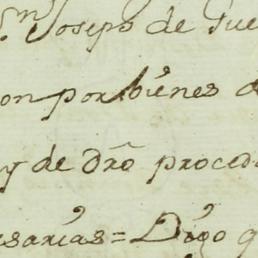 n Josepo de Gue
on por bienes d
y de dro proced
esarias = Digo q